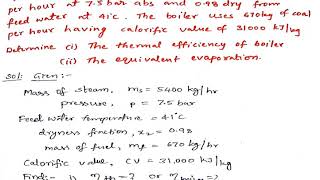 per hour at 7.5 bar abs and 0.98 dry from
feed water at 41°c. The boiler uses 670kg of coal
per hour having calorific value of 31000 kJ/kg
Determine (i) The thermal efficiency of boiler
(ii) The equivalent evaporation.
Sol: Given:-
Mass of steam, ms = 5400 kg/hr
pressure, p = 7.5 bar
Feed water temperature = 41°C
dryness fraction, x2 = 0.98
mass of fuel, mf = 670 kg/hr
Calorific value, CV = 31,000 kJ/kg
Find:- i) ηth = ? or ηboiler = ?